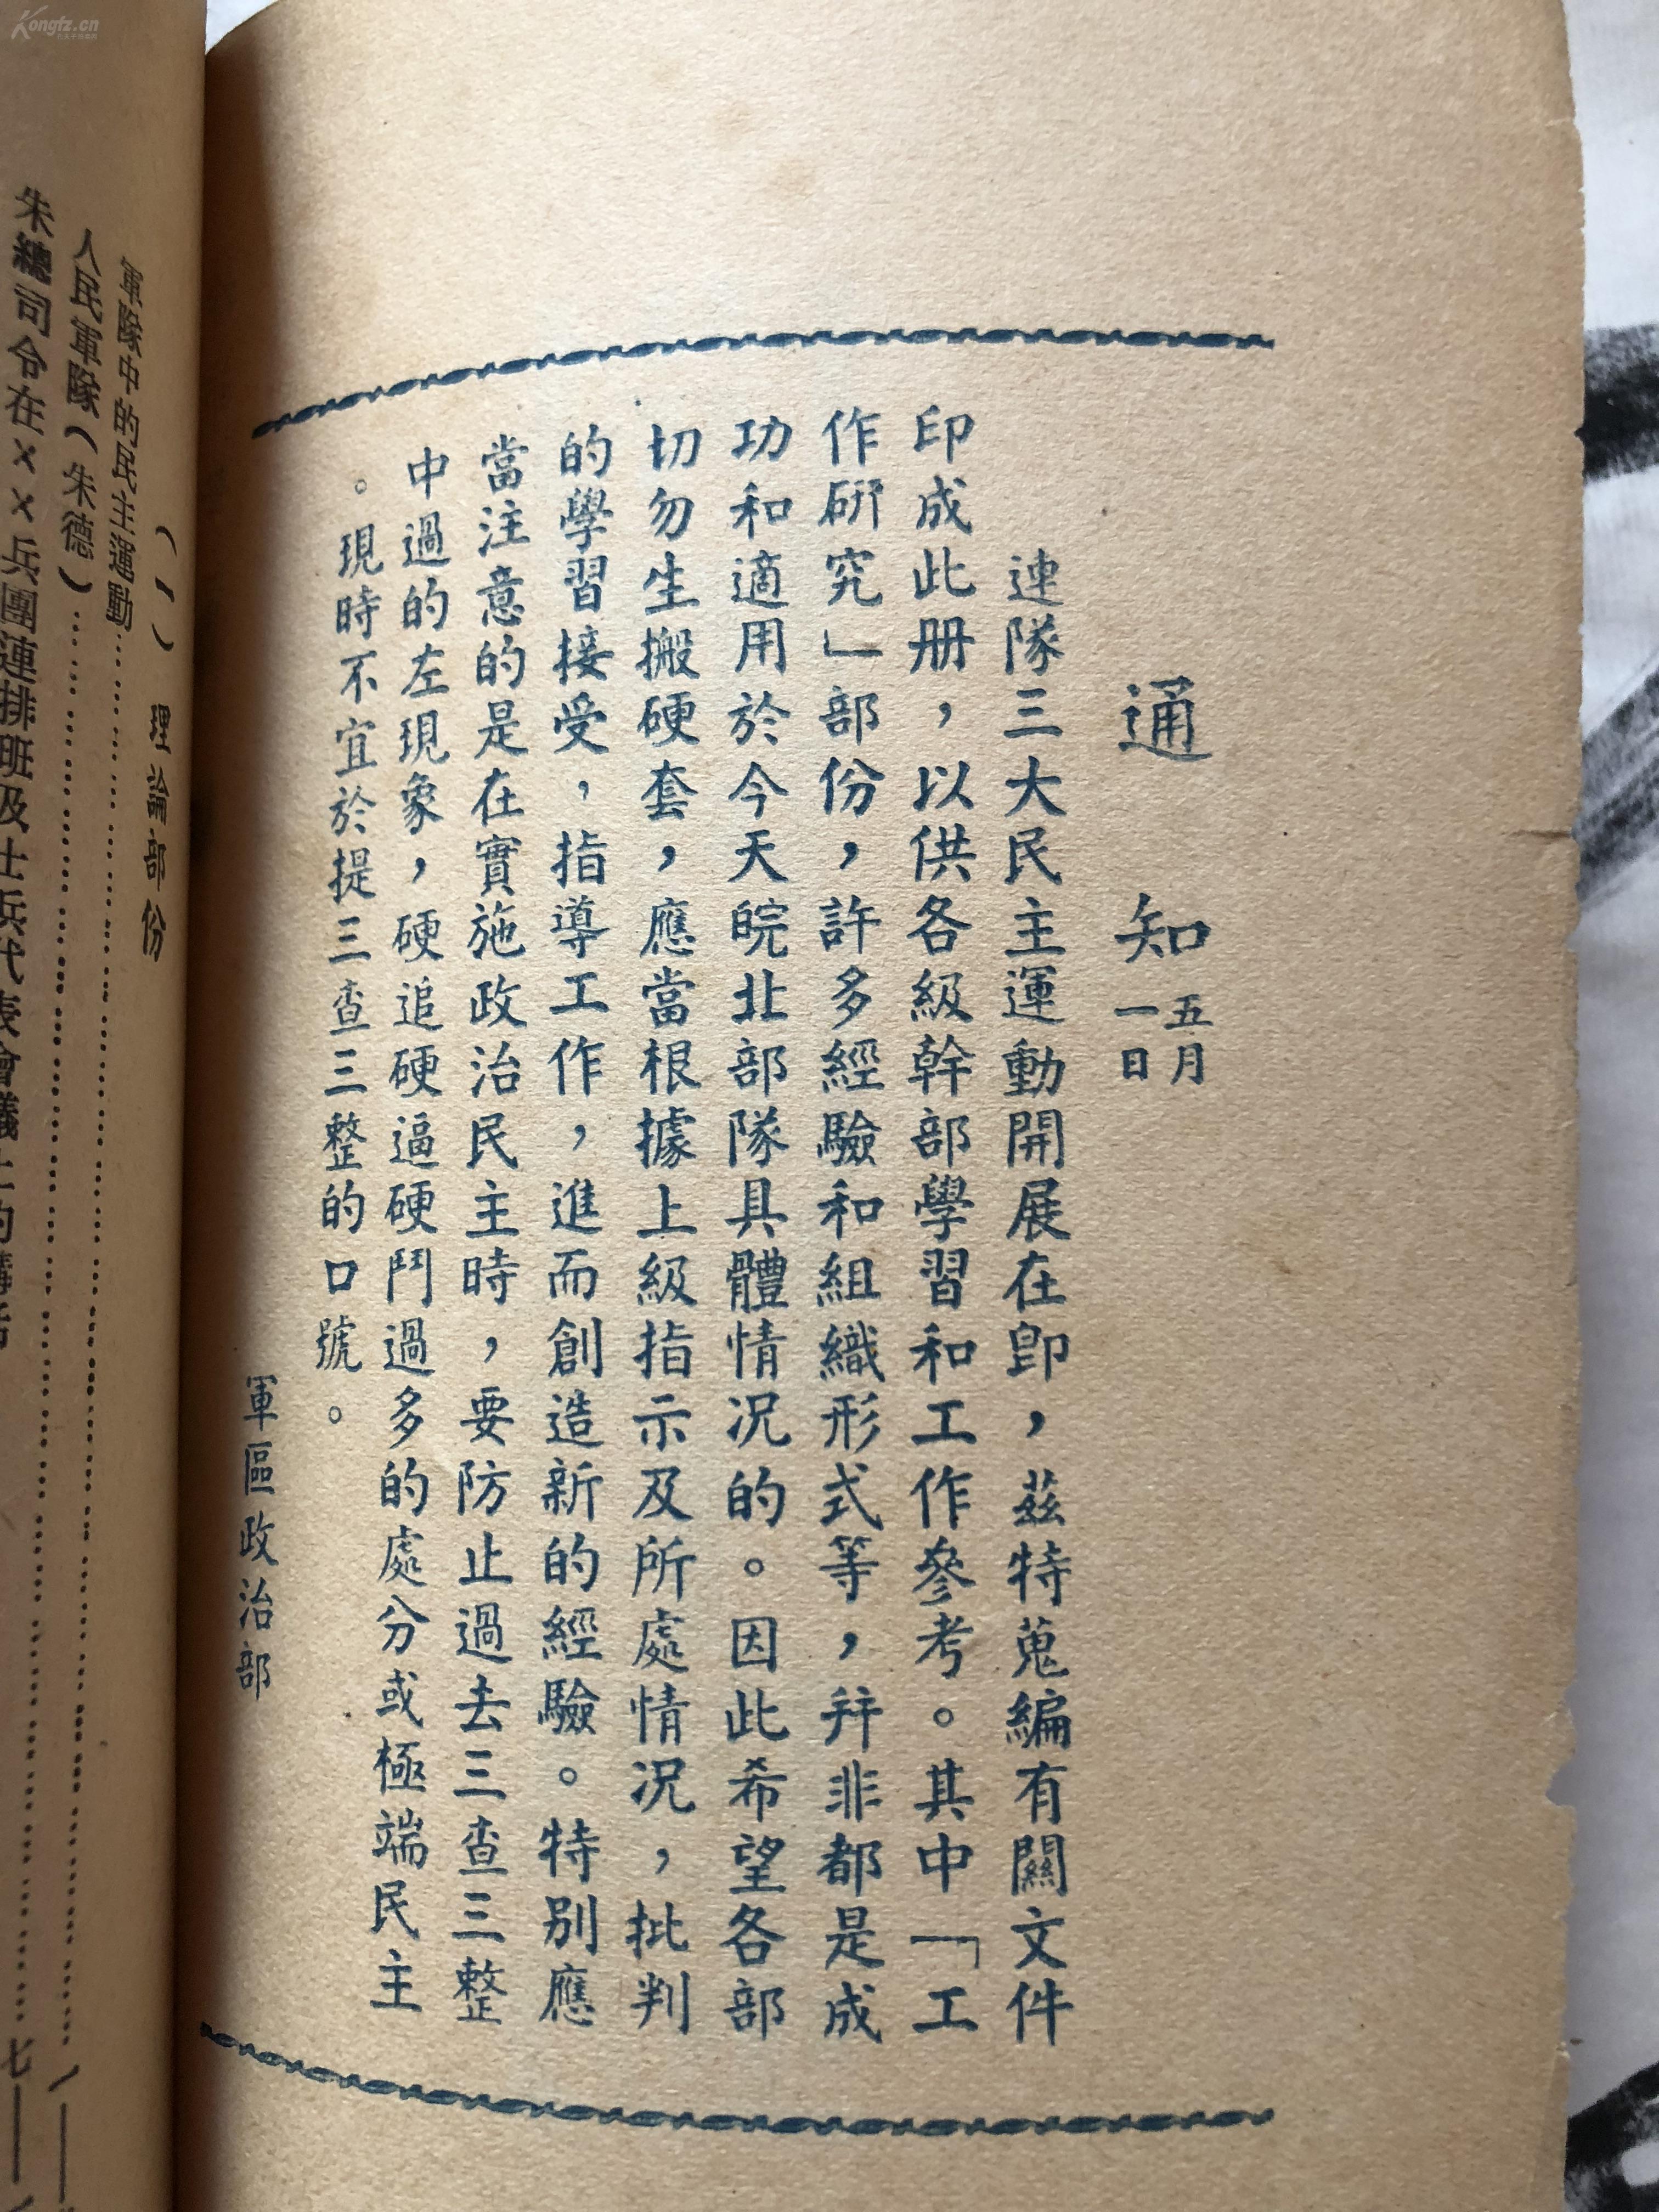 通知 五月一日
連隊三大民主運動開展在即，茲特蒐編有關文件
印成此册，以供各級幹部學習和工作參考。其中「工
作研究」部份，許多經驗和組織形式等，并非都是成
功和適用於今天皖北部隊具體情况的。因此希望各部
切勿生搬硬套，應當根據上級指示及所處情况，批判
的學習接受，指導工作，進而創造新的經驗。特別應
當注意的是在實施政治民主時，要防止過去三查三整
中過的左現象，硬追硬逼硬鬥過多的處分或極端民主
。現時不宜於提三查三整的口號。
軍區政治部
（一） 理論部份
軍隊中的民主運動
人民軍隊（朱德）
朱總司令在××兵團連排班及士兵代表會議上的講話 七
Kongfz.cn